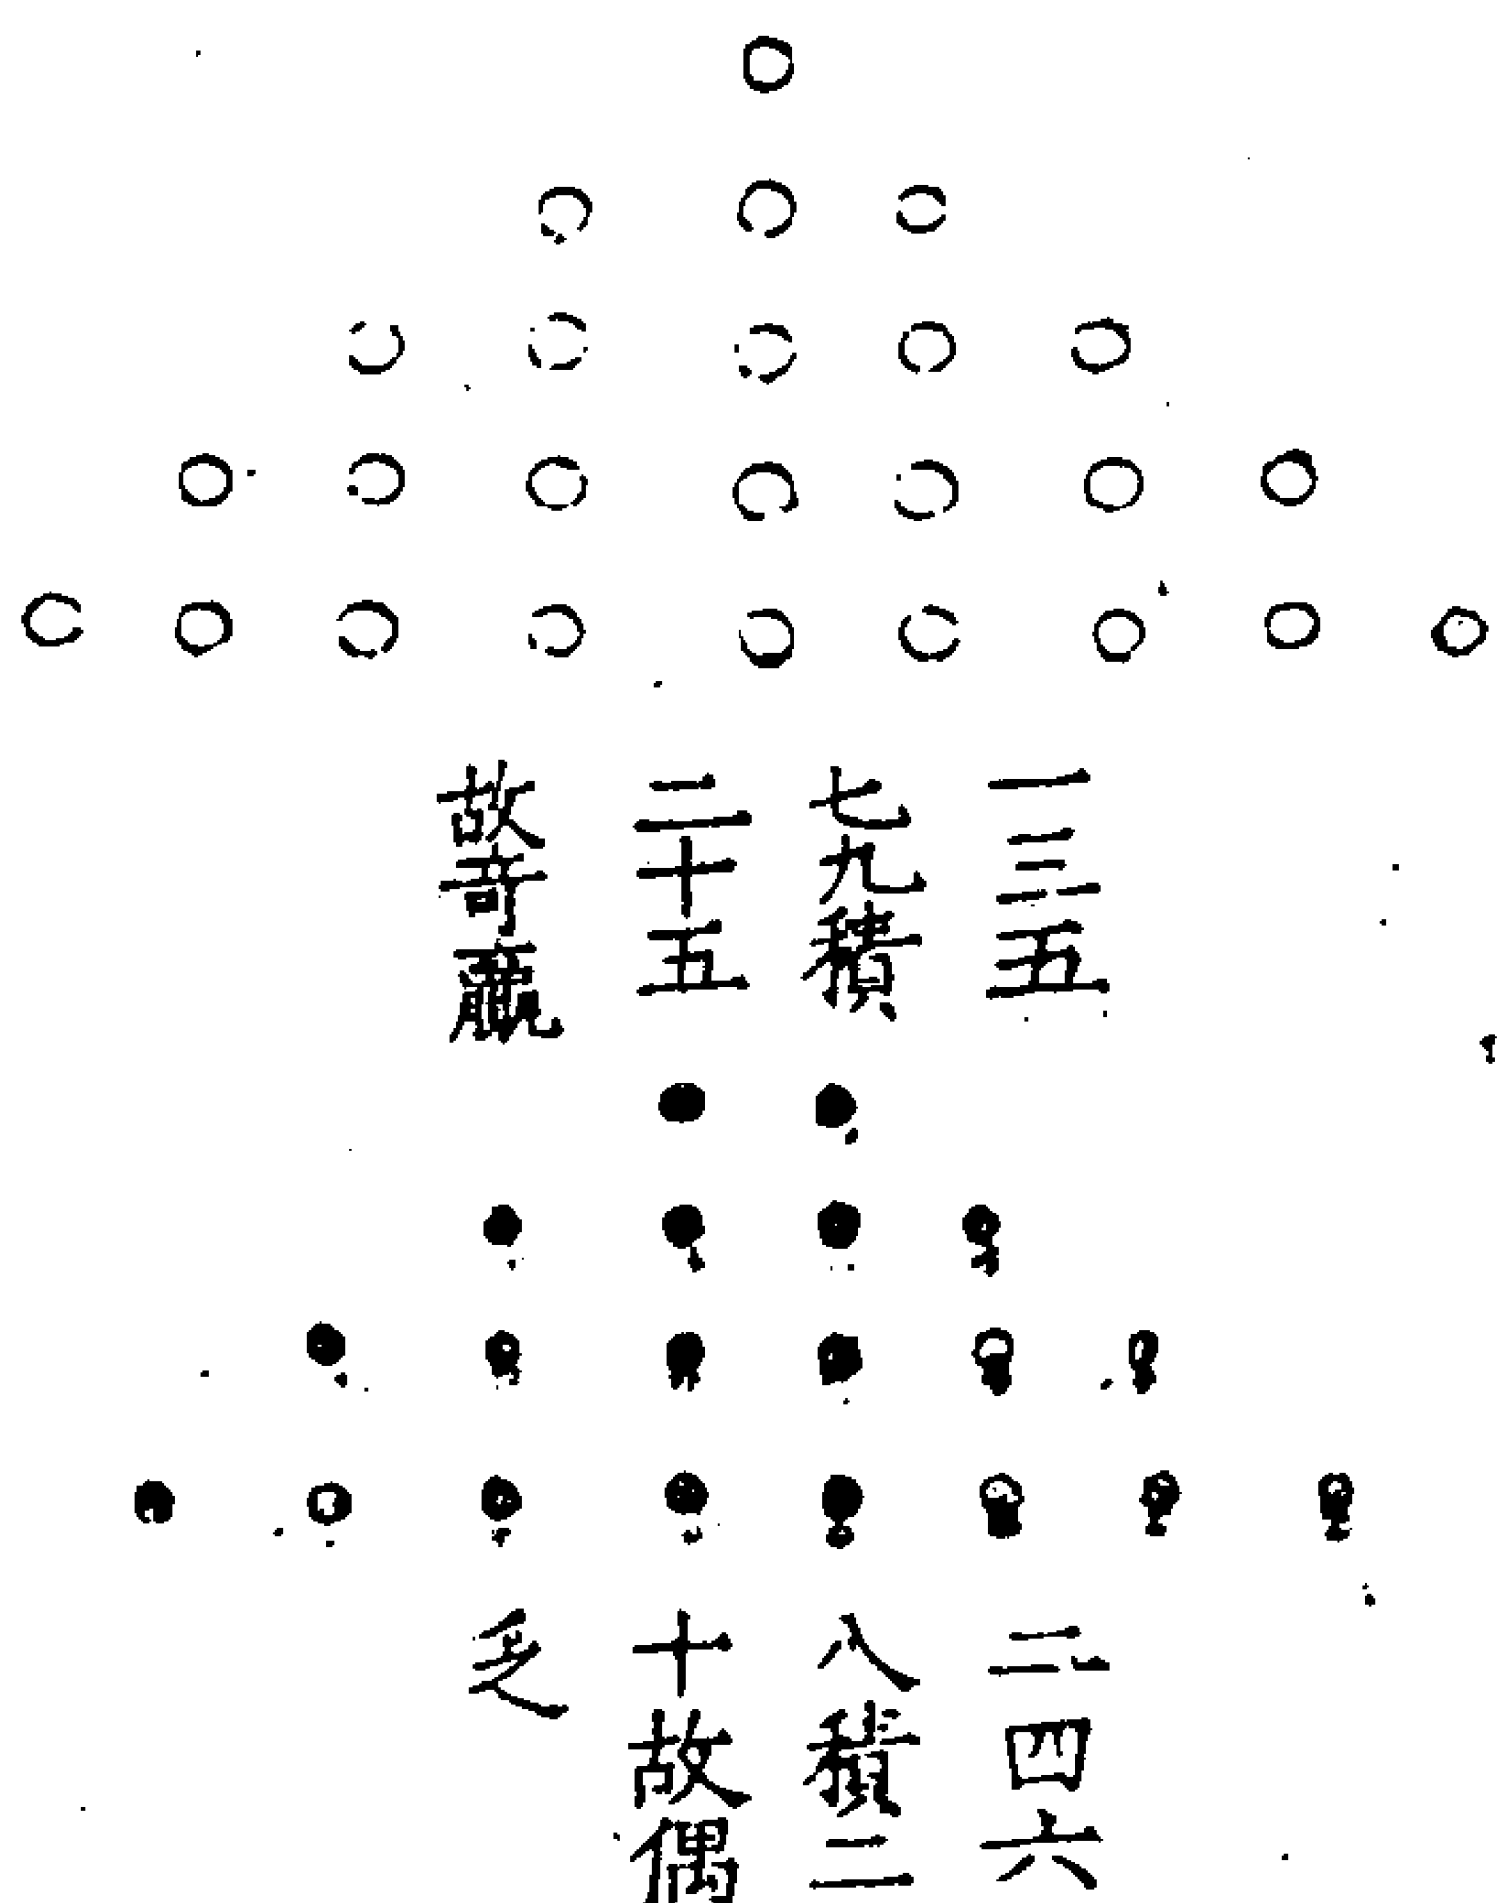 一三五
七九積
二十五
故奇贏
二四六
八積二
十故偶
乏